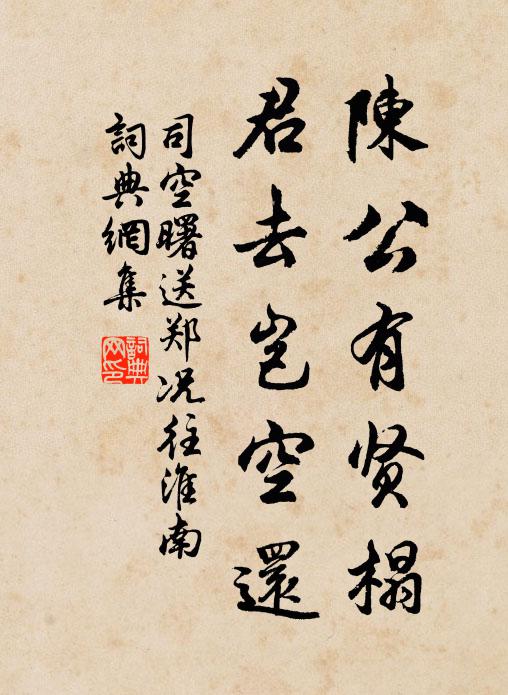 陳公有贤榻
君去岂空還
司空曙送郑况往淮南
詞典網集
詞典网印